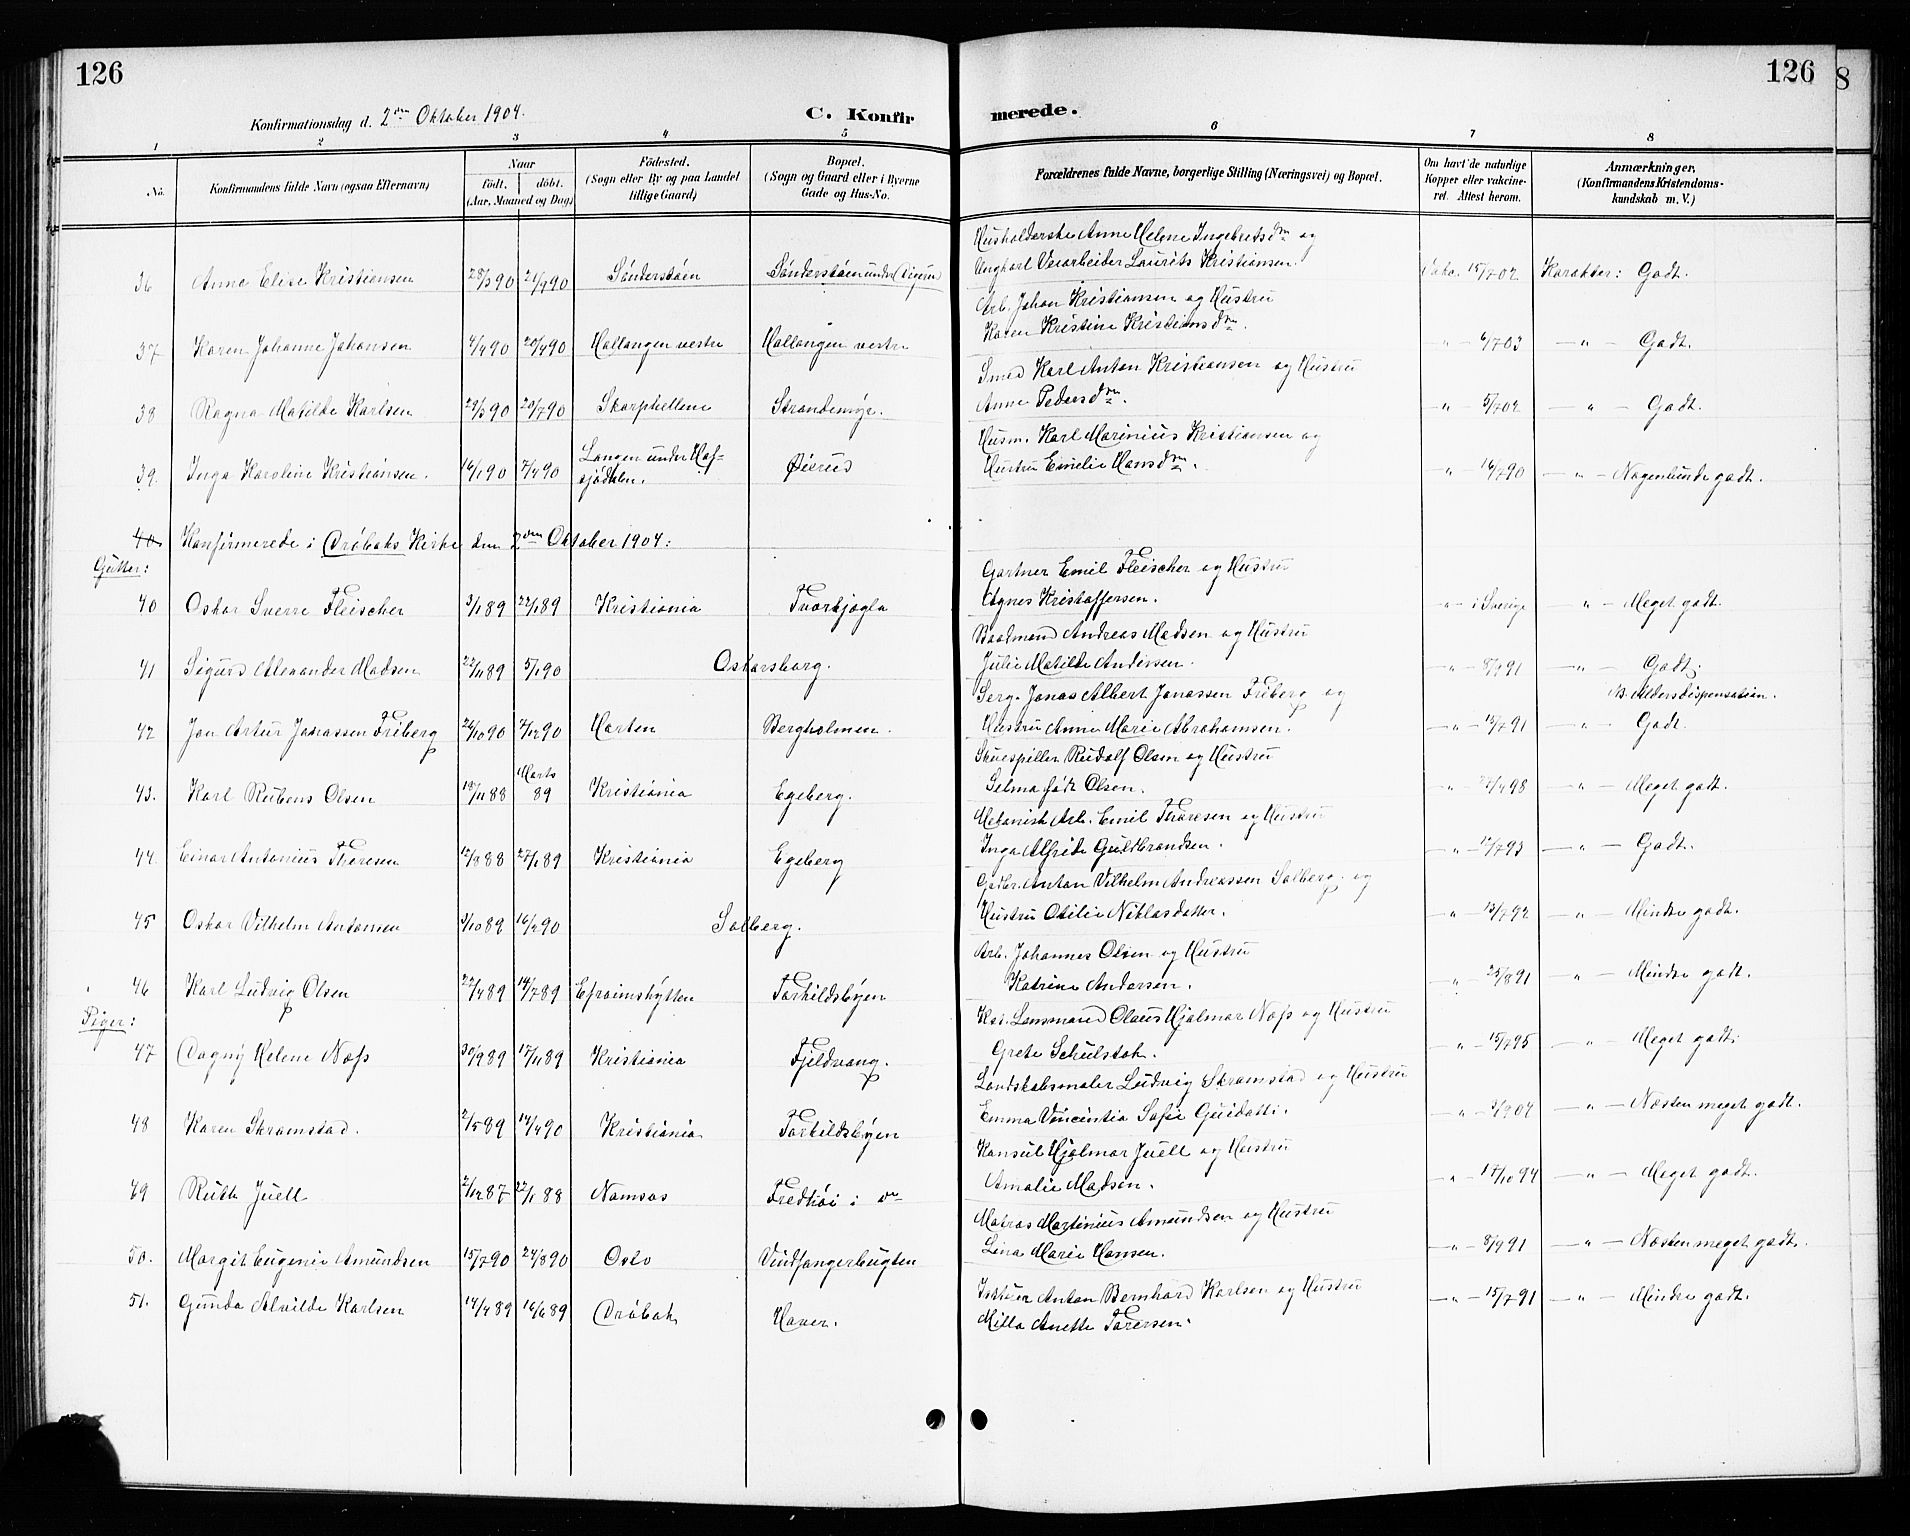 126
126
8
Konfirmationsdag d. 2den Oktober 1904.
C. Konfirmerede.
1 2 3 4 5 6 7 8
No.
Konfirmandens fulde Navn (ogsaa Efternavn)
Naar
födt. döbt.
(Aar, Maaned og Dag)
Födested.
(Sogn eller By og paa Landet
tillige Gaard)
Bopæl.
(Sogn og Gaard eller i Byerne
Gade og Hus-No.
Forældrenes fulde Navne, borgerlige Stilling (Næringsvei) og Bopæl.
Om havt de naturlige
Kopper eller vakcine-
ret. Attest herom.
Anmærkninger,
(Konfirmandens Kristendoms-
kundskab m. V.)
Husholderske Anne Helene Ingebretsdtr og
36 Anna Elise Kristiansen 28/3 90 21/9 90 Sönderstöen Sönderstöen under Digerud Ungkarl Veiarbeider Laurits Kristiansen. 15/7 02 Karakter: Godt.
Arb. Johan Kristiansen og Hustru
37 Karen Johanne Johansen 4/4 90 20/4 90 Hallangen vestre Hallangen vestre Karen Kristine Kristiansdtr. " 6/7 03 " Godt.
Smed Karl Anton Kristiansen og Hustru
38 Ragna Matilde Karlsen 29/3 90 20/7 90 Skarphellene Strandemyr. Anne Pedersdtr. " 5/7 02 " Godt.
Husm. Karl Marinius Kristiansen og
39. Inga Karoline Kristiansen. 16/1 90 7/4 90 Langen under Haf-
sjödalen. Digerud Hustru Emelie Hansdtr. " 16/7 90 " Nogenlunde godt.
40 Konfirmerede i Dröbaks Kirke den 2den Oktober 1904:
Gutter:
Gartner Emil Fleischer og Hustru
40 Oskar Sverre Fleischer 3/1 89 22/1 89 Kristiania Torkjøgla Agnes Kristoffersen. " i Sverige " Meget godt.
Baadmand Andreas Madsen og Hustru
41 Sigurd Alexander Madsen 22/11 89 5/1 90 Oskarsborg. Julie Matilde Andersen. " 8/9 91 " Godt;
Serg. Jonas Albert Jonassen Friberg og N. Aldersdispensation.
42 Jon Artur Jonassen Friberg 26/10 90 7/12 90 Horten Bergholmen. Hustru Anne Marie Abrahamsen. " 15/7 91 " Godt.
Skuespiller Rudolf Olsen og Hustru
43. Karl Rubens Olsen 18/11 88 Marts
89 Kristiania Egeberg. Selma født Olsen. " 22/4 98 " Meget godt.
Mekanisk Arb. Emil Thoresen og Hustru
44. Einar Antonius Thoresen 12/8 88 27/1 89 Kristiania Egeberg Inga Alfride Guldbrandsen. " 12/7 93 " Godt.
Gaardbr. Anton Vilhelm Andreassen Solberg og
45 Oskar Vilhelm Antonsen 3/10 89 16/2 90 Solberg. Hustru Otilie Niklasdatter. " 13/7 92 " Mindre godt.
Arb. Johannes Olsen og Hustru
46 Karl Ludvig Olsen 22/4 89 14/7 89 Efraimshytten Torkildsbyen Katrine Andersen. " 25/8 91 " Mindre godt.
Piger:
Kst. Lensmand Claus Hjalmar Næss og Hustru
47 Dagny Helene Næss 30/9 89 17/11 89 Kristiania Fjeldvang. Grete Schulstok. " 15/7 95 " Meget godt.
Landskabsmaler Ludvig Skramstad og Hustru
48 Karen Skramstad. 2/5 89 14/4 90 Kristiania Torkildsbyen Emma Vincentia Sofie Guidotti. " 3/9 04 " Næsten meget godt.
Konsul Hjalmar Juell og Hustru
49 Ruth Juell 2/12 87 22/1 88 Namsos Fredhøi i do Amalie Madsen. " 17/10 94 " Meget godt.
Matros Martinius Amundsen og Hustru
50. Margit Eugenie Amundsen 15/7 90 24/8 90 Oslo Vindfangerbugten Lina Marie Hansen. " 8/9 91 " Næsten meget godt.
51. Gunda Alvilde Karlsen 14/4 89 16/6 89 Dröbak Haver. Anton Bernhard Karlsen og Hustru " 15/7 91 " Mindre godt.
Milla Anette Toresen.